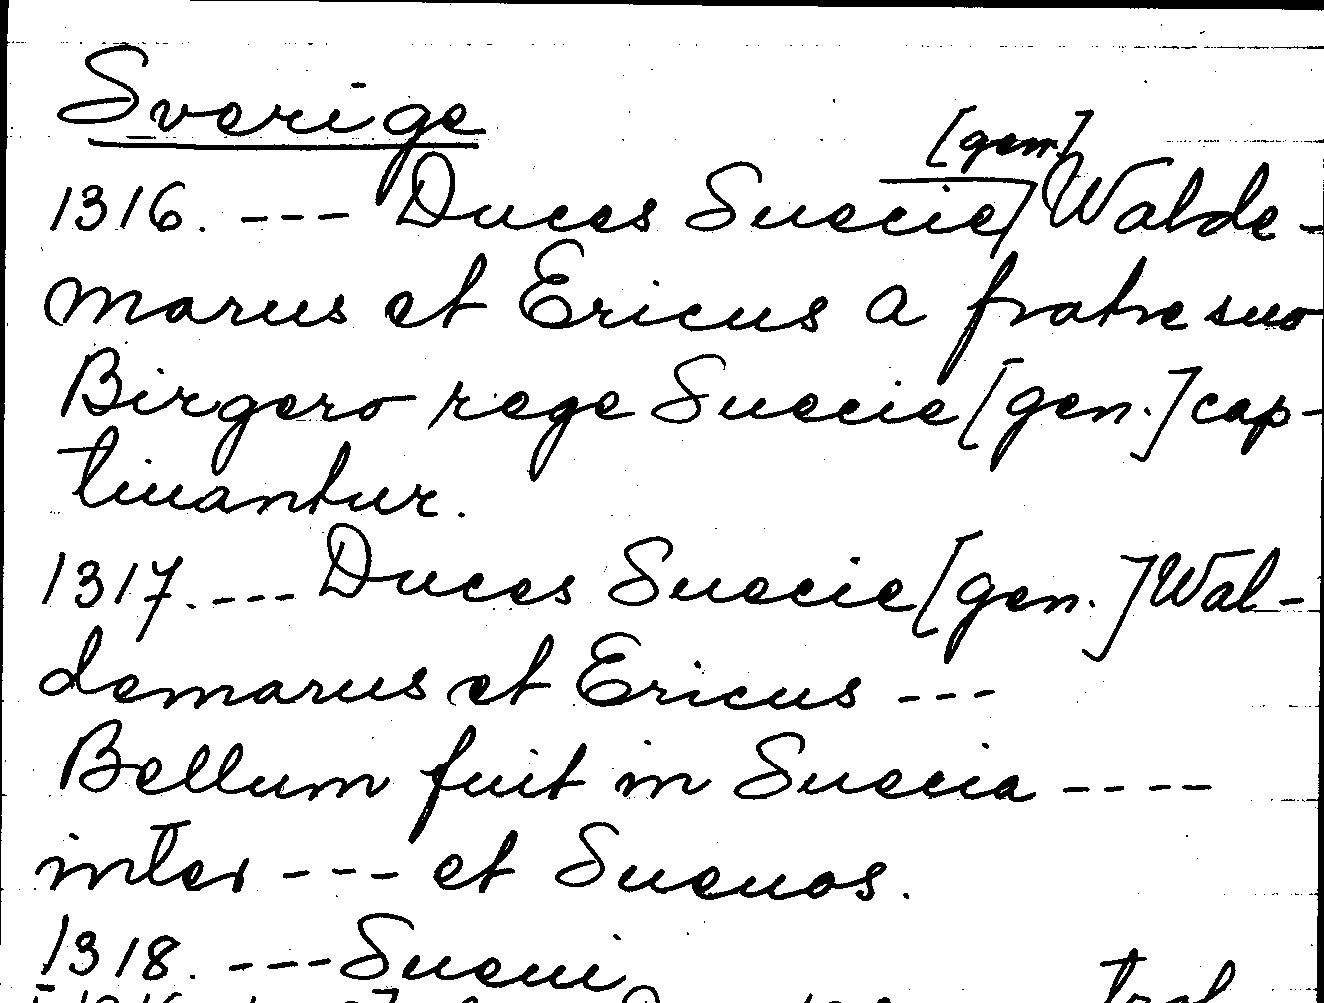 Sverige
[gen.]
1316. --- Duces Suecie] Walde-
marus et Ericus a fratre suo
Birgero rege Suecie [gen.] cap-
tiuantur.
1317. --- Duces Suecie [gen.] Wal-
demarus et Ericus ---
Bellum fuit in Suecia ----
inter --- et Sueuos.
1318. --- Sueui